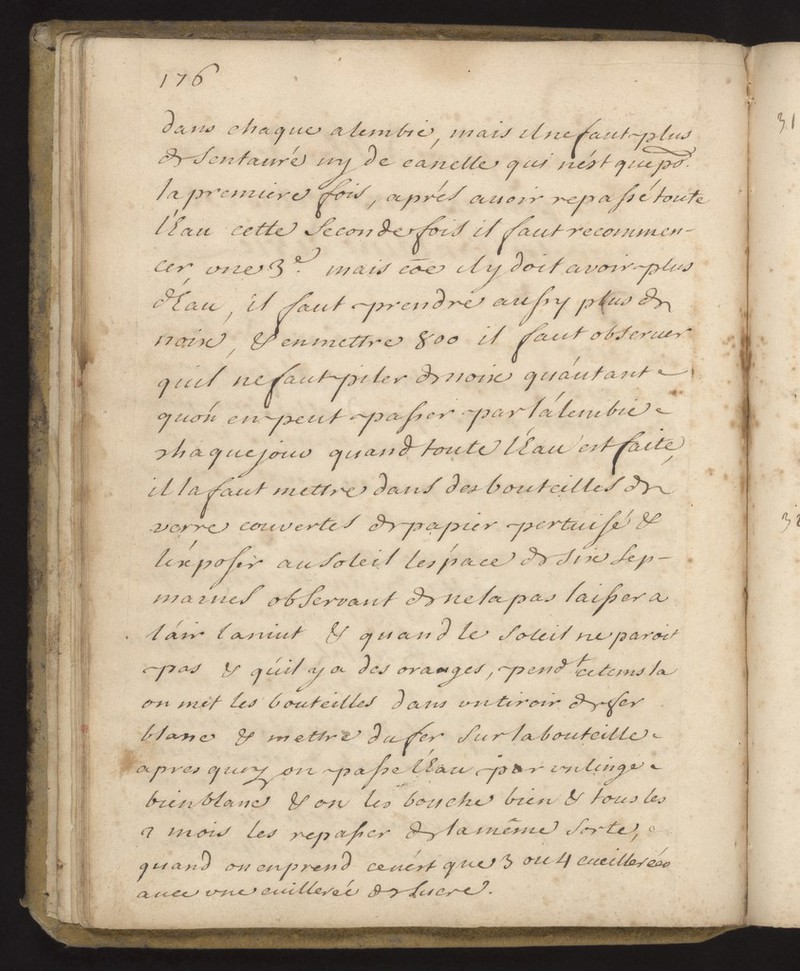 176
dans chaque alembic, mais il ne faut plus
de Sentauré ny de canelle qui n'ést que po.r
la premiere fois, aprés auoir repassé toute
l'Eau cette Seconde fois il faut recommen-
cer une 3e. mais cõe il y doit avoir plus
d'Eau, il faut prendre aussy plus de
noix, & en mettre 800 il faut obseruer
quil ne faut piler de noix qu'áutant
quón en peut passer par l'álembic
chaque jour quand toute l'Eau est faite,
il la faut mettre dans des bouteilles de
verre couvertes de papier pertuisé &
l'éxposer au Soleil l'espace de Six Sep-
maines observant de ne la pas laisser a
l'áir la niut & quand le Soleil ne paroit
pas & qu'il y a des orages, pendt ce tems la
on met les bouteilles dans un tiroir de fer
blanc & mettre du fer Sur la bouteille
apres quoy on passe l'Eau par un linge
bien blanc & on les bouche bien & tous les
2 mois les repasser de la même Sorte,
quand on en prend ce n'ést que 3 ou 4 cueillerées
avec une cuillereé de Sucre.
31